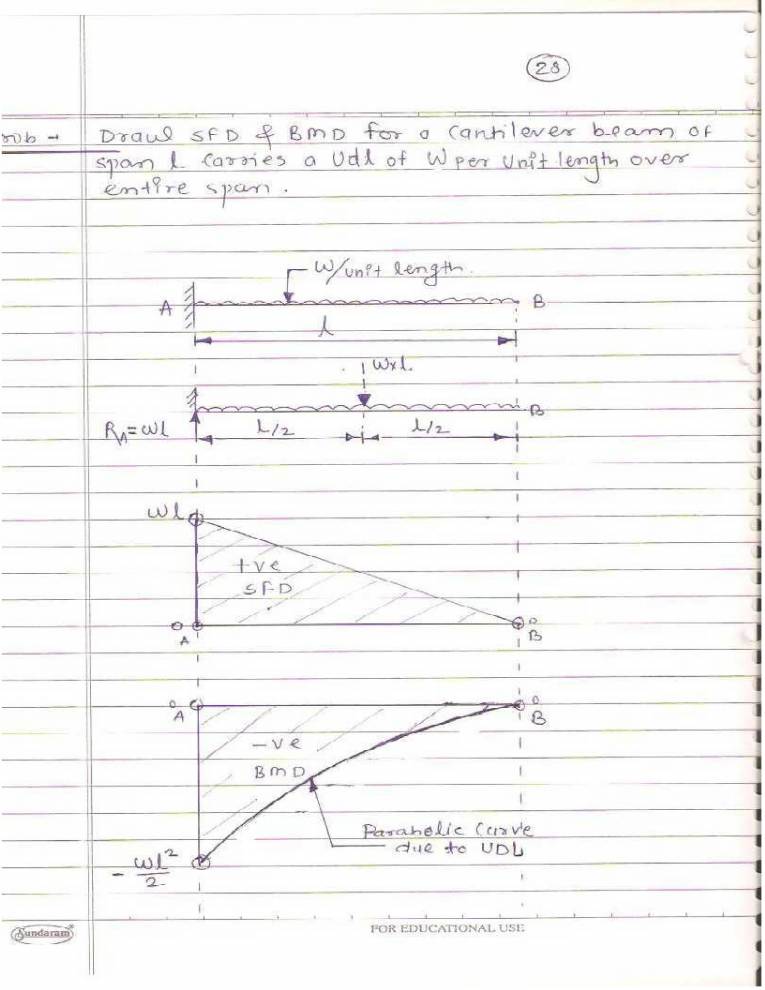 28
Draw SFD & BMD for a cantilever beam of
span l carries a Udl of W per unit length over
entire span.
W/unit length.
A
B
l
W×l.
B
R_A=wl
l/2
l/2
Wl
+ve
SFD
0
A
0
B
0
A
0
B
-ve
BMD
Parabolic Curve
due to UDL
- wl²/2
Sundaram
FOR EDUCATIONAL USE